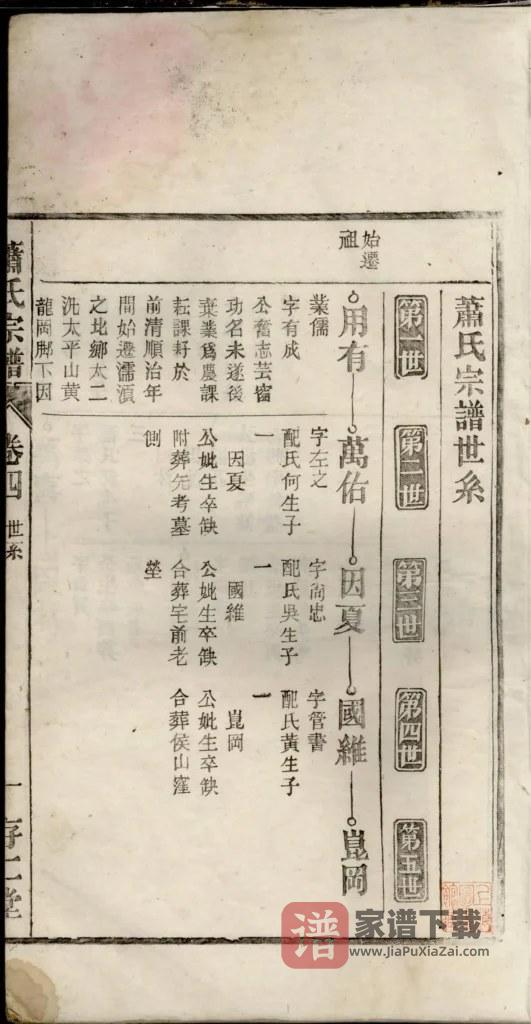 蕭氏宗譜世系
第一世
第二世
第三世
第四世
第五世
始遷
祖
用有
萬佑
因夏
國維
崑岡
業儒
字有成
公奮志芸窗
功名未遂後
棄業爲農課
耘課耔於
前清順治年
間始遷濡湏
之北鄉太二
汛太平山黄
龍岡脚下因
字左之
配氏何生子
一
因夏
公妣生卒缺
附葬先考墓
側
字尚忠
配氏吳生子
一
國維
公妣生卒缺
合葬宅前老
塋
字管書
配氏黃生子
一
崑岡
公妣生卒缺
合葬侯山窪
蕭氏宗譜
卷四
世系
一
存仁堂
谱
家谱下载
www.JiaPuXiaZai.com